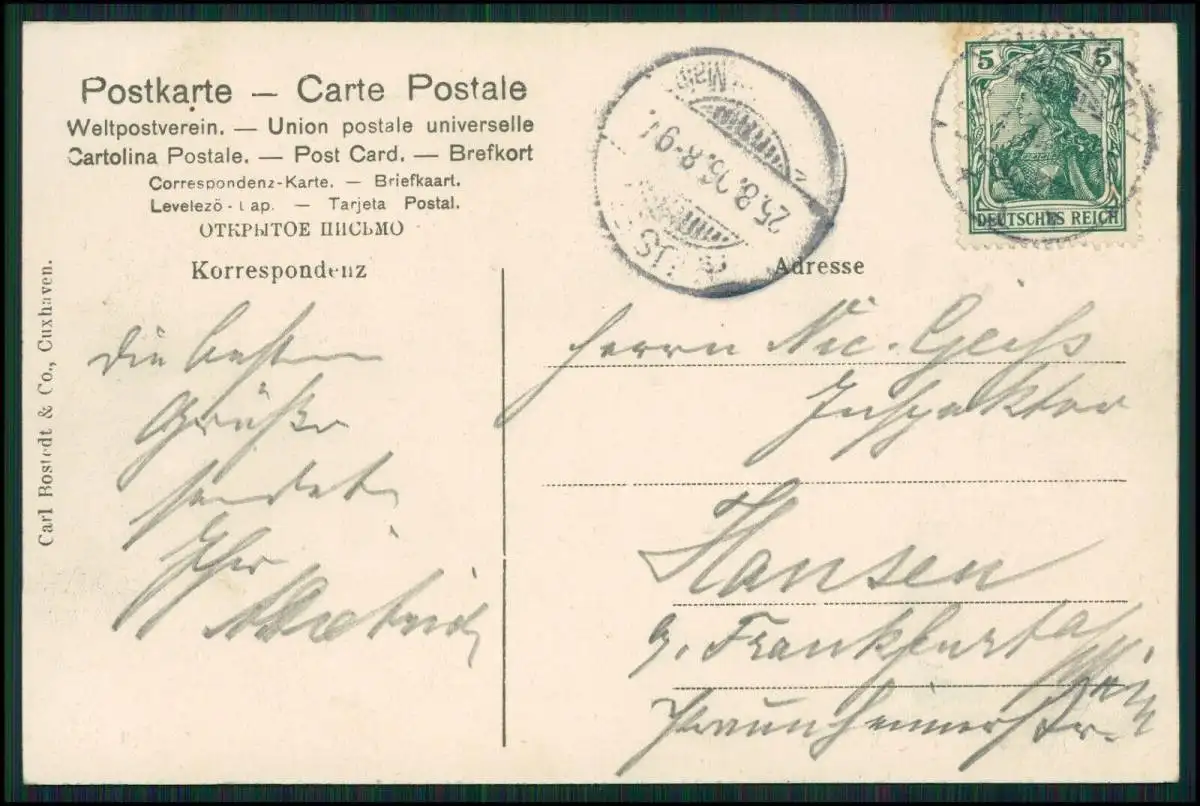 Postkarte — Carte Postale
Weltpostverein. — Union postale universelle
Cartolina Postale. — Post Card. — Brefkort
Correspondenz-Karte. — Briefkaart.
Levelező-Lap. — Tarjeta Postal.
ОТКРЫТОЕ ПИСЬМО
Korrespondenz
Carl Rostedt & Co., Cuxhaven.
Die besten
Grüße
sendet
Ihr
25.8.06.8-9
5 5
DEUTSCHES REICH
Adresse
Herrn Nic. Geiß
Inspektor
Hausen
b. Frankfurt a/
Main
Praunheimerstr.